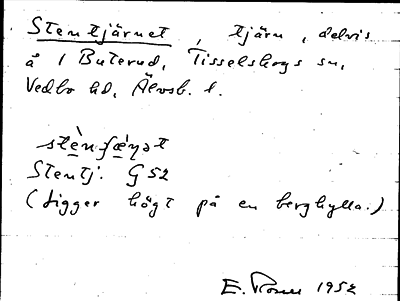 Stentjärnet, tjärn, delvis
å 1 Buterud, Tisselskogs sn,
Vedbo hd, Älvsb. l.
Stentj. G 52
(ligger högt på en berghylla.)
E. 1952